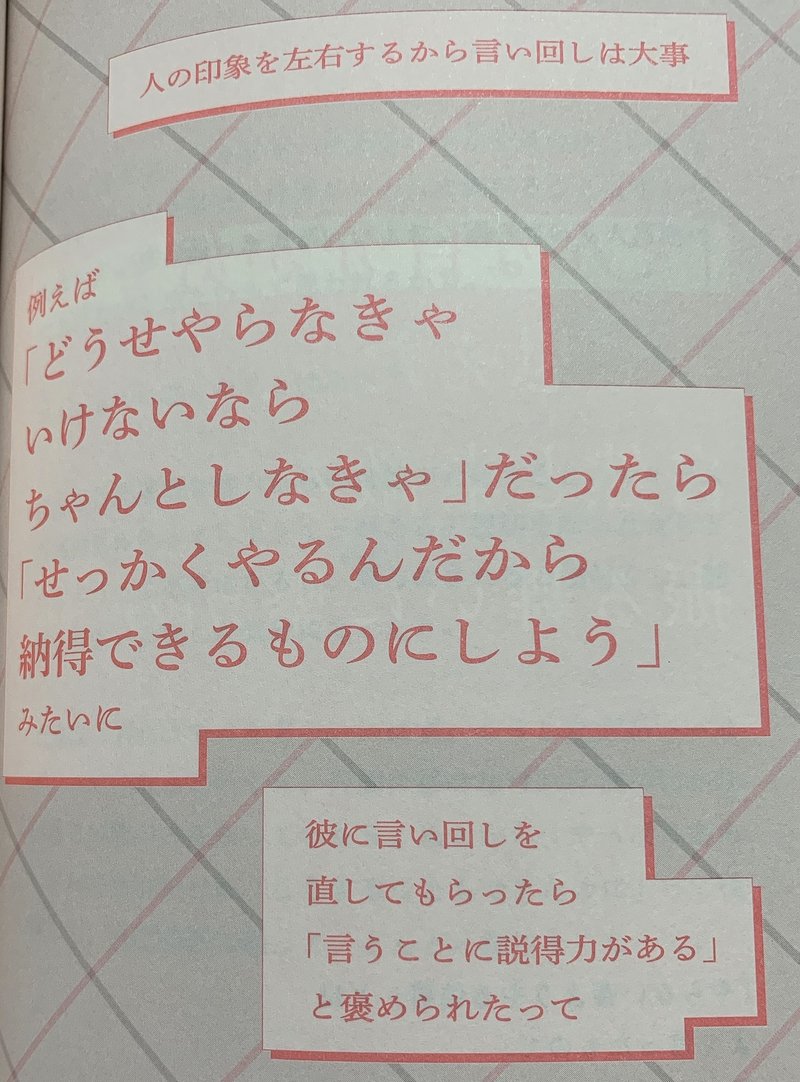 人の印象を左右するから言い回しは大事
例えば
「どうせやらなきゃ
いけないなら
ちゃんとしなきゃ」だったら
「せっかくやるんだから
納得できるものにしよう」
みたいに
彼に言い回しを
直してもらったら
「言うことに説得力がある」
と褒められたって